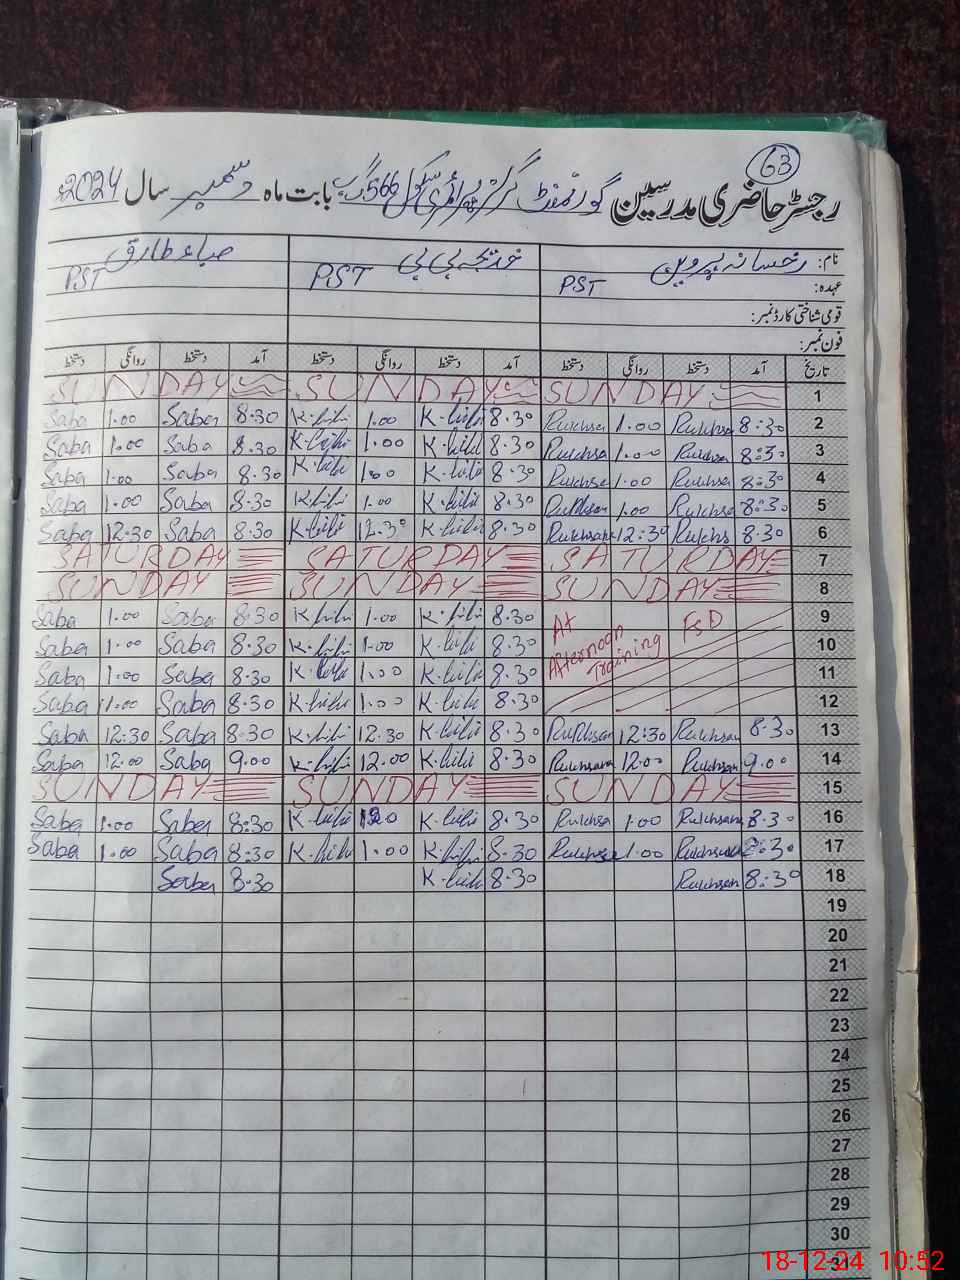 63
رجسٹر حاضری مدرسین گورنمنٹ گرلز پرائمری سکول 566 گ ب بابت ماہ دسمبر سال 2024ء
نام: رخسانہ پروین خدیجہ بی بی صباء طارق
عہدہ: PST PST PST
قومی شناختی کارڈ نمبر:
فون نمبر:
تاریخ آمد دستخط روانگی دستخط آمد دستخط روانگی دستخط آمد دستخط روانگی دستخط
SUNDAY SUNDAY SUNDAY 1
Saba 1.00 Saba 8.30 K-bibi 1.00 K-bibi 8.30 Rukhsa 1.00 Rukhsa 8:30 2
Saba 1.00 Saba 8.30 K-bibi 1.00 K-bibi 8.30 Rukhsa 1.00 Rukhsa 8:30 3
Saba 1.00 Saba 8.30 K-bibi 1.00 K-bibi 8.30 Rukhsa 1.00 Rukhsa 8:30 4
Saba 1.00 Saba 8.30 K-bibi 1.00 K-bibi 8.30 Rukhsan 1.00 Rukhsa 8:30 5
Saba 12.30 Saba 8.30 K-bibi 12.30 K-bibi 8.30 Rukhsana 12:30 Rukhs 8.30 6
SATURDAY SATURDAY SATURDAY 7
SUNDAY SUNDAY SUNDAY 8
Saba 1.00 Saba 8.30 K-bibi 1.00 K-bibi 8.30 At FSD 9
Saba 1.00 Saba 8.30 K-bibi 1.00 K-bibi 8.30 Afternoon 10
Saba 1.00 Saba 8.30 K-bibi 1.00 K-bibi 8.30 Training 11
Saba 1.00 Saba 8.30 K-bibi 1.00 K-bibi 8.30 12
Saba 12.30 Saba 8.30 K-bibi 12.30 K-bibi 8.30 Rukhsan 12:30 Rukhsan 8.30 13
Saba 12.00 Saba 9.00 K-bibi 12.00 K-bibi 8.30 Rukhsana 12.00 Rukhsan 9.00 14
SUNDAY SUNDAY SUNDAY 15
Saba 1.00 Saba 8:30 K-bibi K-bibi 8.30 Rukhsa 1.00 Rukhsana 8.30 16
Saba 1.00 Saba 8:30 K-bibi 1.00 K-bibi 8.30 Rukhsa 1.00 Rukhsana 8:30 17
Saba 8.30 K-bibi 8.30 Rukhsan 8:30 18
19
20
21
22
23
24
25
26
27
28
29
30
31
18-12-24 10:52